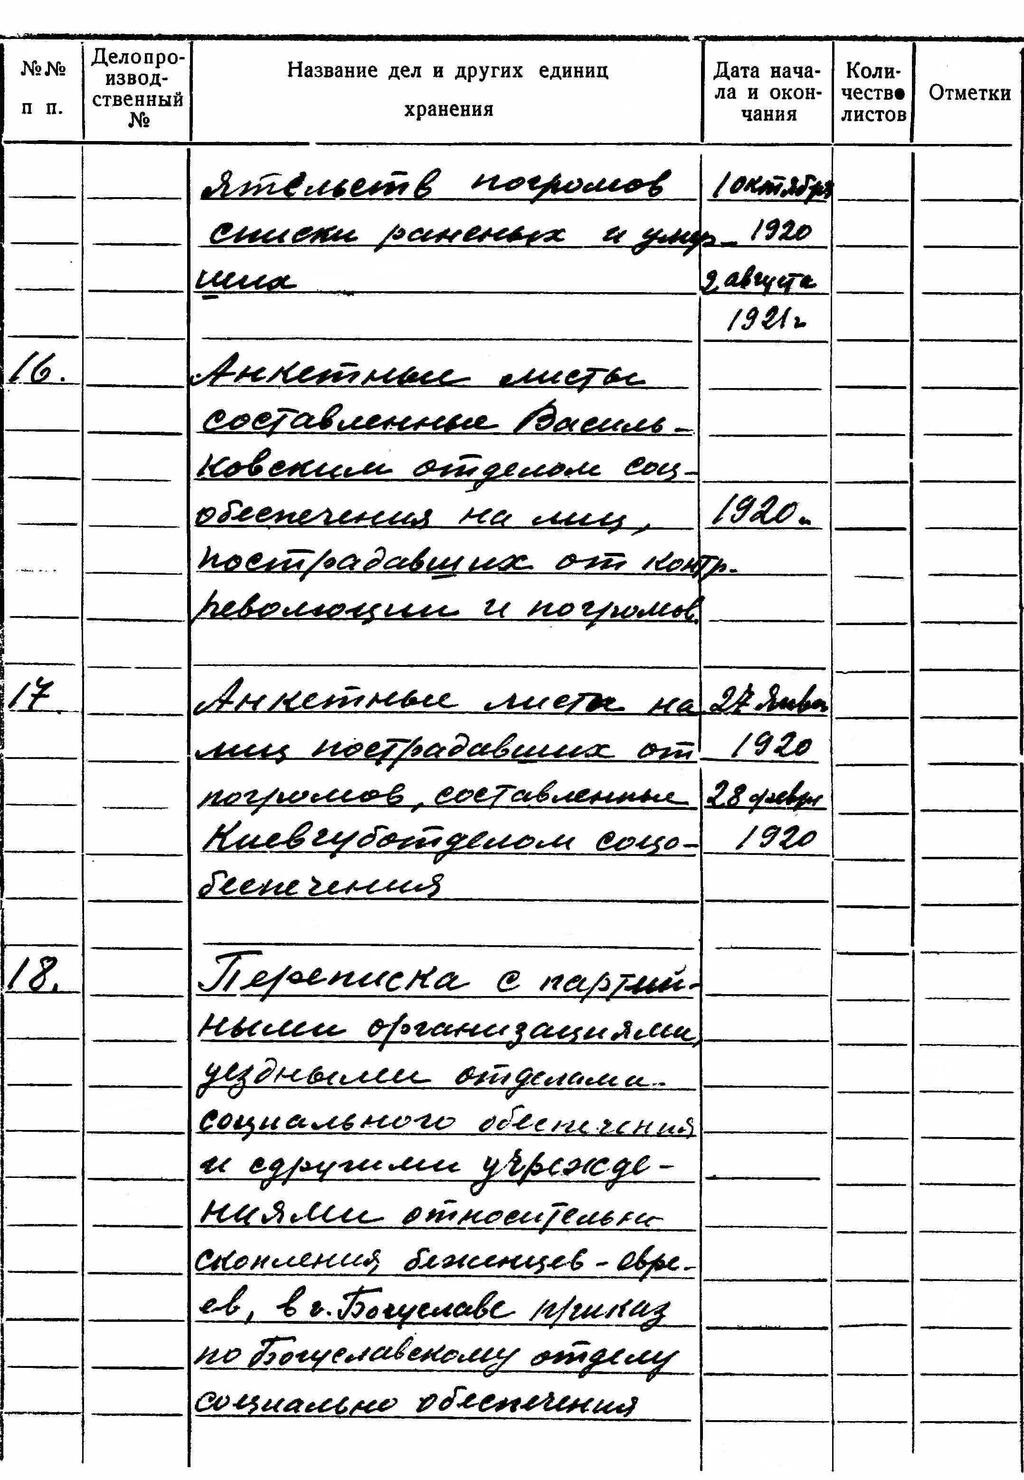 №№ п п.
Делопро-
извод-
ственный
№
Название дел и других единиц
хранения
Дата нача-
ла и окон-
чания
Коли-
чество
листов
Отметки
ятельств погромов 1 октября
списки раненых и умер- 1920
ших 2 августа
1921 г
16. Анкетные листы
составленные Василь-
ковским отделом соц-
обеспечения на лиц, 1920 г.
пострадавших от контр-
революции и погромов.
17 Анкетные листы на 27 янва
лиц пострадавших от 1920
погромов, составленные 28 февр
Киевгуботделом социо- 1920
беспечения
18. Переписка с партий-
ными организациями,
уездными отделами
социального обеспечения
и сдругими учрежде-
ниями относительно
скопления беженцев-евре-
ев, в г. Богуславе приказ
по Богуславскому отделу
социально обеспечения